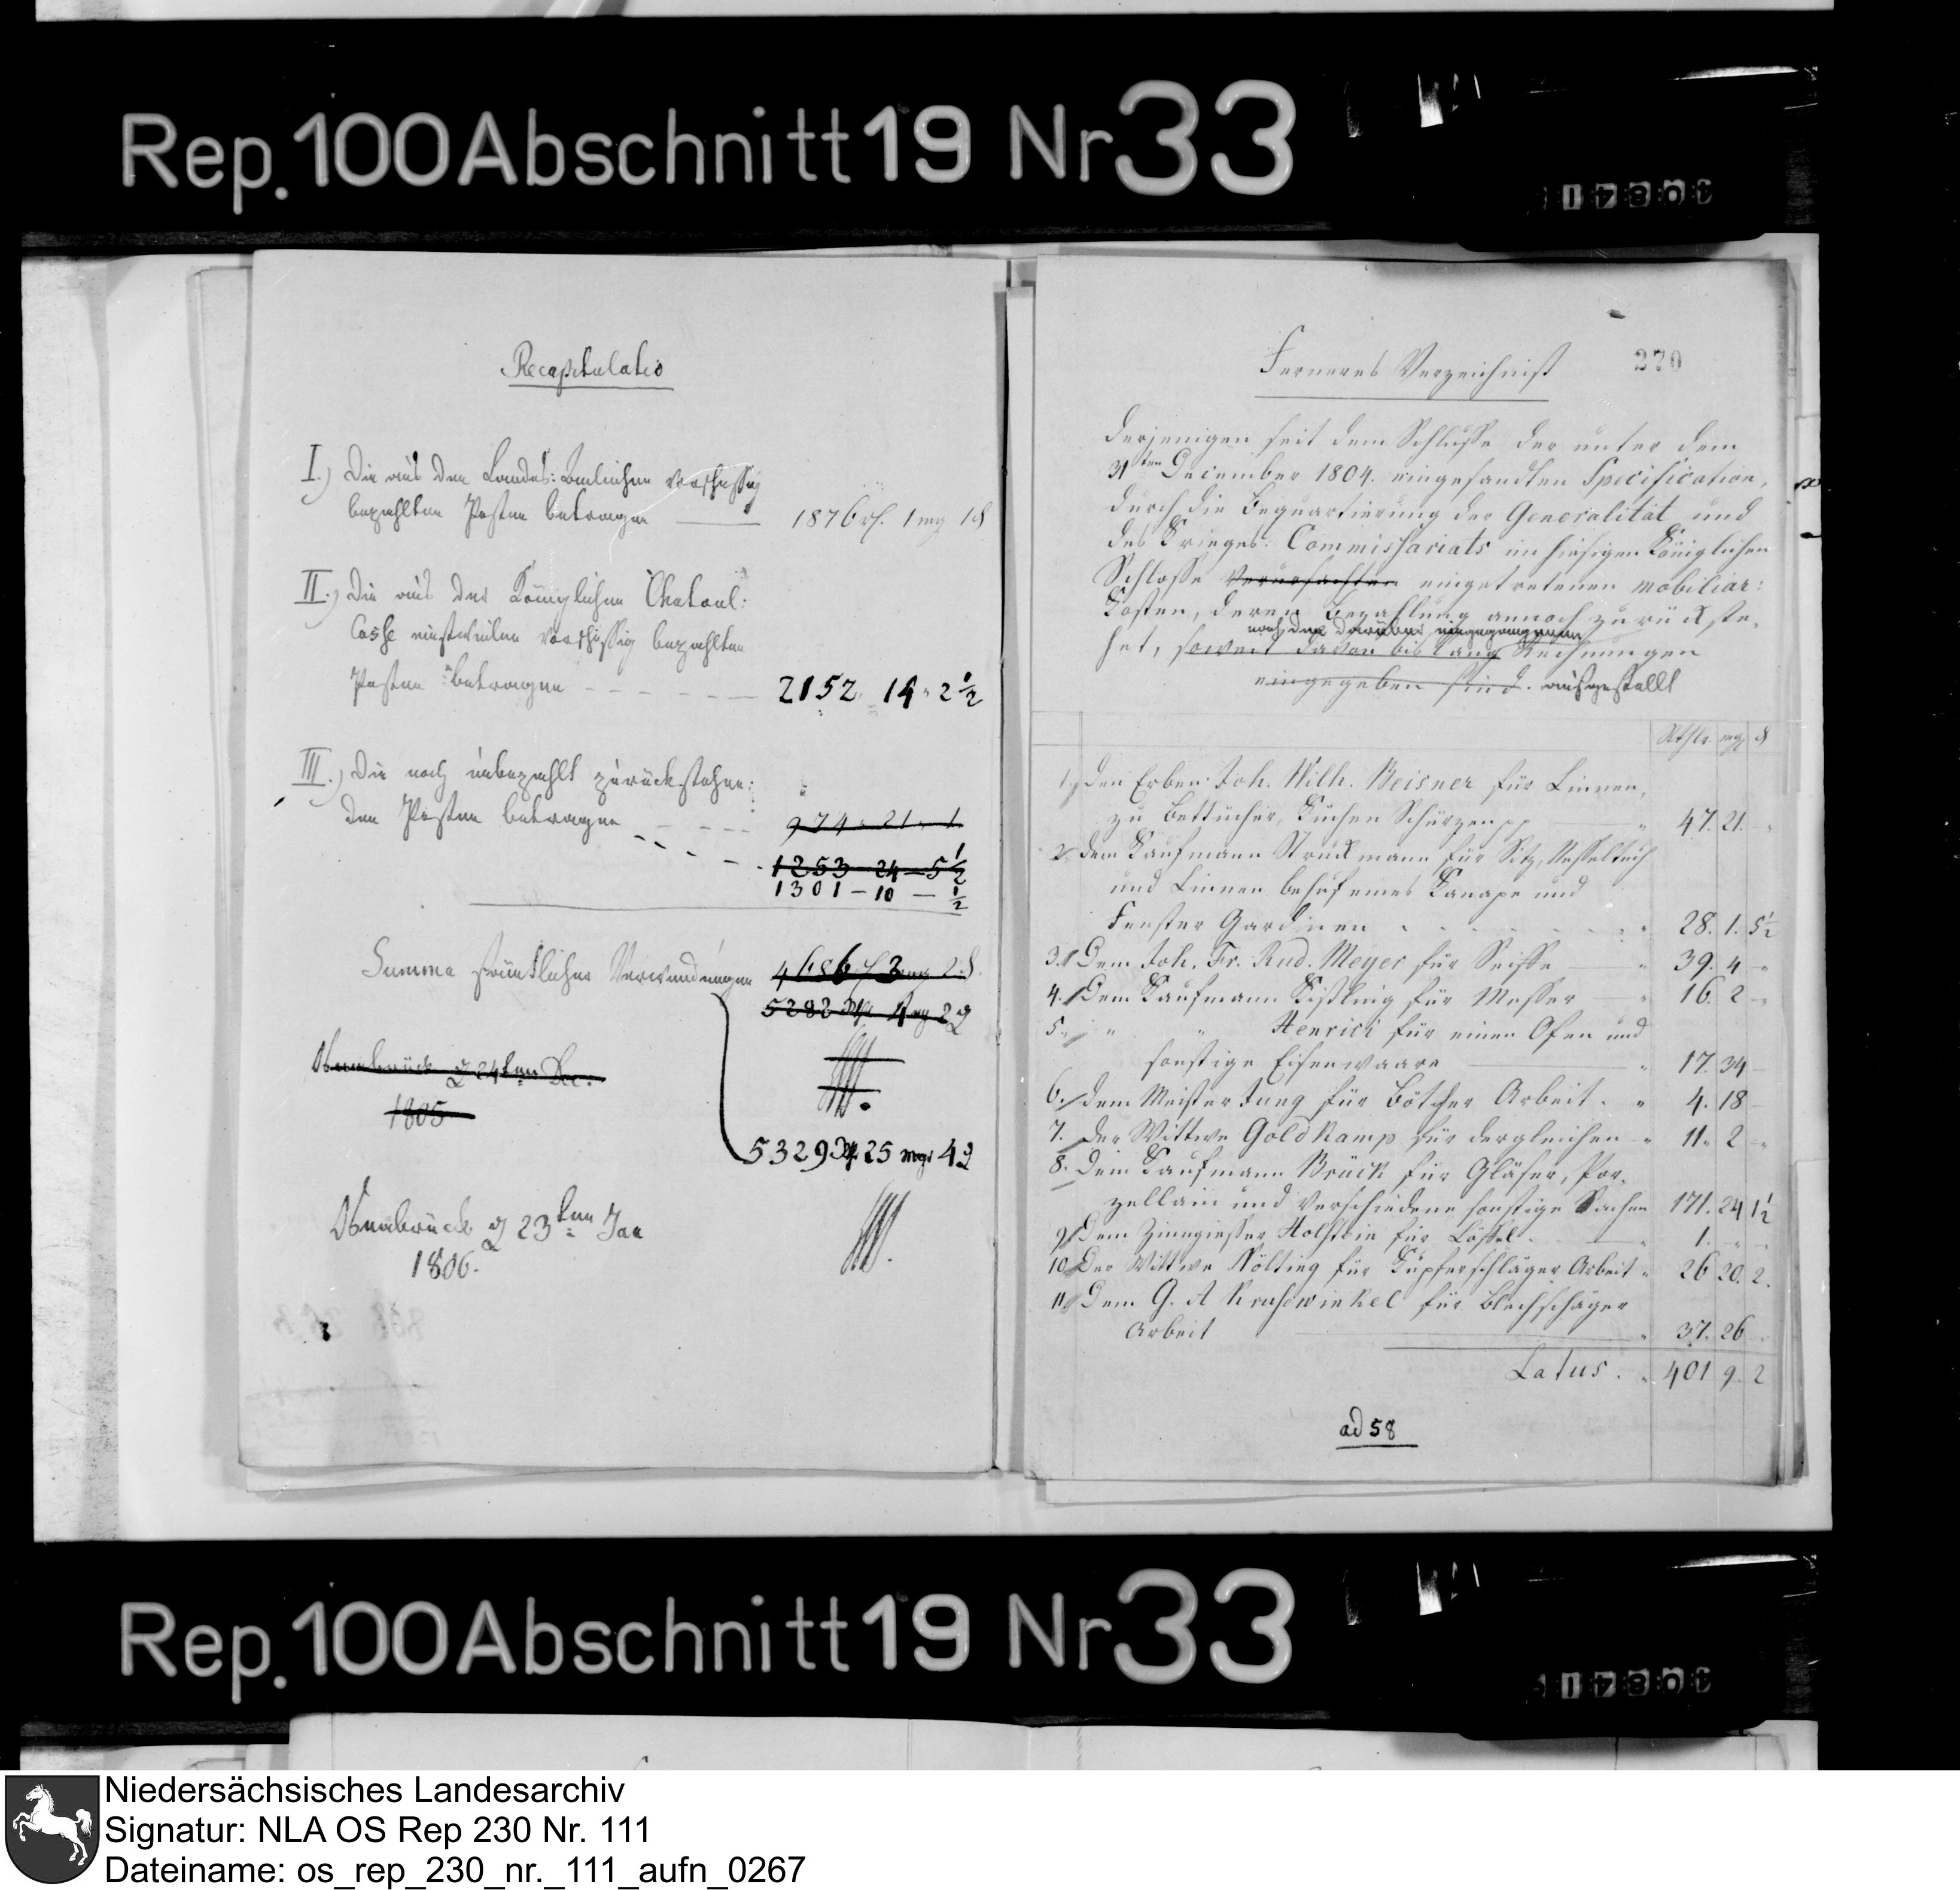 Rep. 100 Abschnitt 19 Nr 33
40841
Recapitulatio
I.) Die aus den Landes: Baulichen vorschüssig
bezahlten Posten betragen 1876 rh. 1 mg 1 d
II.) Die aus der Königlichen Chatoul:
Casse einstweilen vorschüssig bezahlten
Posten betragen 2152. 14. 2 1/2
III.) Die noch unbezahlt zurückstehen:
den Posten betragen 974. 21. 1
1253 - 24 - 5 1/2
1301 - 10 - 1/2
Summa sämtlicher Verwendungen
5282 4 mg 2 d
Osnabrück d 24ten Dec.
1805
5329 25 mgr 4 d
Osnabrück d 23ten Jan
1806.
Ferneres Verzeichniß
270
derjenigen seit dem Schlusse der unter dem
31ten December 1804. eingesandten Specification,
durch die Bequartierung der Generalität und
des Krieges: Commissariats im hiesigen Königlichen
Schlosse verursachten eingetretenen mobiliar:
Kosten, deren Bezahlung annoch zurückste,
nach den darüber eingegangenen
het, soweit davon bis lang Rechnungen
eingegeben sind. aufgestellt
Rthlr. mg d
1, Den Erben Joh. Wilh. Meisner für Linnen,
zu Bettücher, Küchen Schürzen pp 47. 21.
2 dem Kaufmann Struckmann für Zitz, Nesseltuch
und Linnen behuf eines Kanape und
Fenster Gardinen 28. 1. 5 1/2
3. Dem Joh. Fr. Rud. Meyer für Seife 39. 4
4. Dem Kaufmann Kißling für Messer 16. 2
5. " " Henrici für einen Ofen und
sonstige Eisenwaare 17. 34
6. dem Meister Jung für Bötcher Arbeit. 4. 18
7. Der Wittwe Goldkamp für dergleichen 11. 2
8. Dem Kaufmann Brück für Gläser, Por,
zellain und verschiedene sonstige Sachen 171. 24 1 1/2
9 Dem Zinngiesser Holstein für Löffel 1.
10 Der Wittwe Nölting für Kupferschläger Arbeit 26 20. 2.
11 Dem G. A Kruhswinkel für Blechschläger
Arbeit 37. 26
Latus. 401 9. 2
ad 58
Rep. 100 Abschnitt 19 Nr 33
40841
Niedersächsisches Landesarchiv
Signatur: NLA OS Rep 230 Nr. 111
Dateiname: os_rep_230_nr._111_aufn_0267